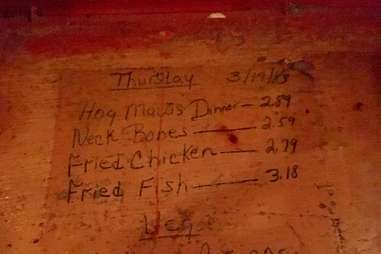 Thursday 3/19/83
Hog Maws Dinner — 2.89
Neck Bones — 2.59
Fried Chicken — 2.79
Fried Fish — 3.18